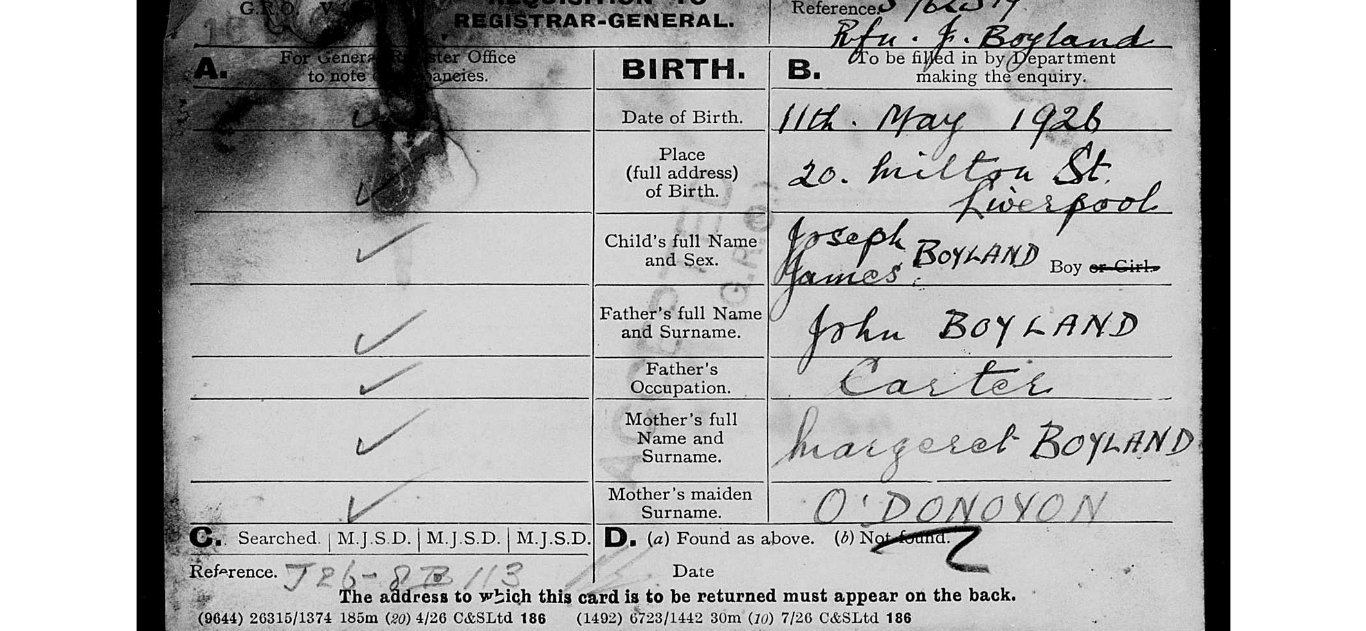 G.R.O.
REQUISITION TO
REGISTRAR-GENERAL.
Reference.
Rfn. J. Boyland
A.
For General Register Office
to note
BIRTH.
B.
To be filled in by Department
making the enquiry.
Date of Birth.
11th. May 1926
Place
(full address)
of Birth.
20. Milton St.
Liverpool
Child's full Name
and Sex.
Joseph
James BOYLAND
Boy or Girl.
Father's full Name
and Surname.
John BOYLAND
Father's
Occupation.
Carter
Mother's full
Name and
Surname.
Margeret BOYLAND
Mother's maiden
Surname.
O'DONOVON
ACCEPTED
G.R.O.
C. Searched. M.J.S.D. M.J.S.D. M.J.S.D.
D. (a) Found as above. (b) Not found.
Reference. J26-8B/113
Date
The address to which this card is to be returned must appear on the back.
(9644) 26315/1374 185m (20) 4/26 C&SLtd 186 (1492) 6723/1442 30m (10) 7/26 C&SLtd 186